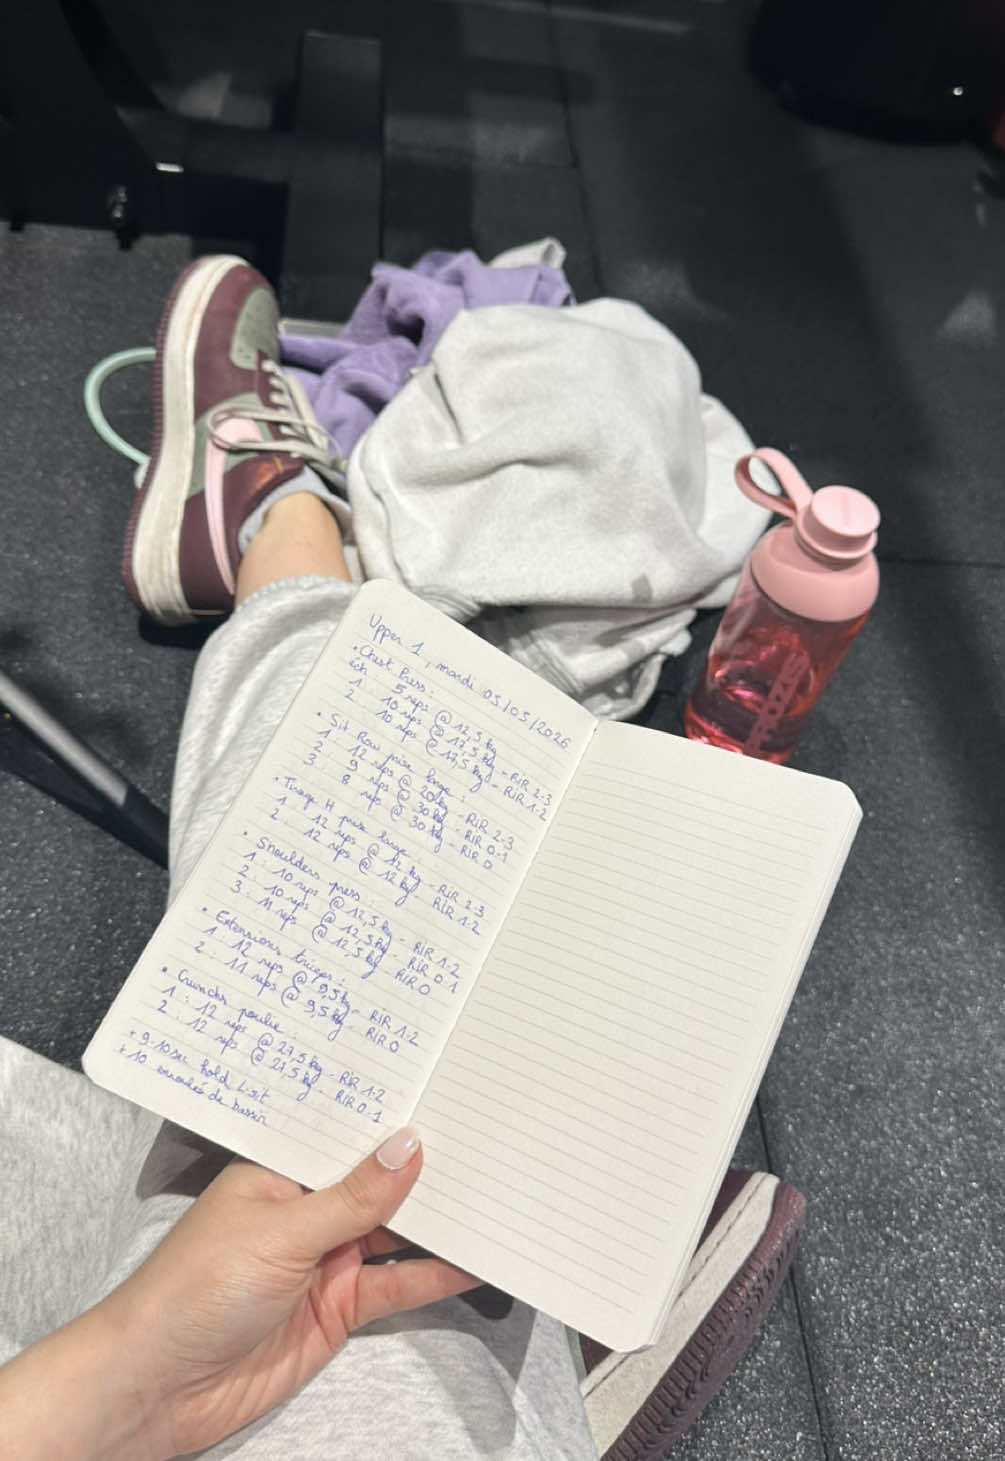 Upper 1, mardi 05/05/2026
• Chest Press :
éch : 5 reps @ 12,5 kg
1 : 10 reps @ 17,5 kg - RIR 2-3
2 : 10 reps @ 17,5 kg - RIR 1-2
• Sit Row prise large :
1 : 12 reps @ 20kg - RIR 2-3
2 : 9 reps @ 30kg - RIR 0-1
3 : 8 reps @ 30kg - RIR 0
• Tirage H prise large :
1 : 12 reps @ 12 kg - RIR 2-3
2 : 12 reps @ 12 kg - RIR 1-2
• Shoulders press :
1 : 10 reps @ 12,5kg - RIR 1-2
2 : 10 reps @ 12,5kg - RIR 0-1
3 : 11 reps @ 12,5kg - RIR 0
• Extensions triceps :
1 : 12 reps @ 9,5kg - RIR 1-2
2 : 11 reps @ 9,5kg - RIR 0
• Crunchs poulie :
1 : 12 reps @ 27,5kg - RIR 1-2
2 : 12 reps @ 27,5kg - RIR 0-1
+ 9-10sec hold L-sit
+ 10 de bassin